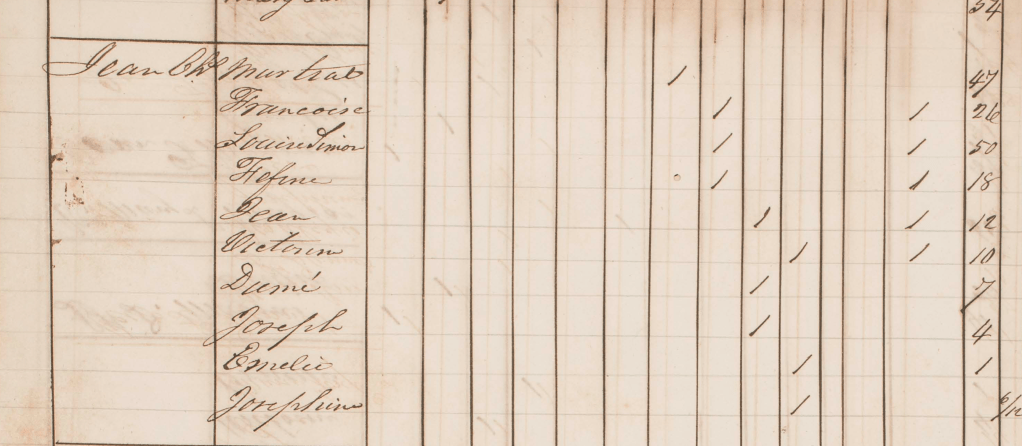 54
Jean Martial 1 47
Francoise 1 1 26
Louise Simon 1 1 50
Fefine 1 1 18
Jean 1 1 12
Victorin 1 1 10
Dumé 1 7
Joseph 1 4
Emelie 1 1
Josephine 1